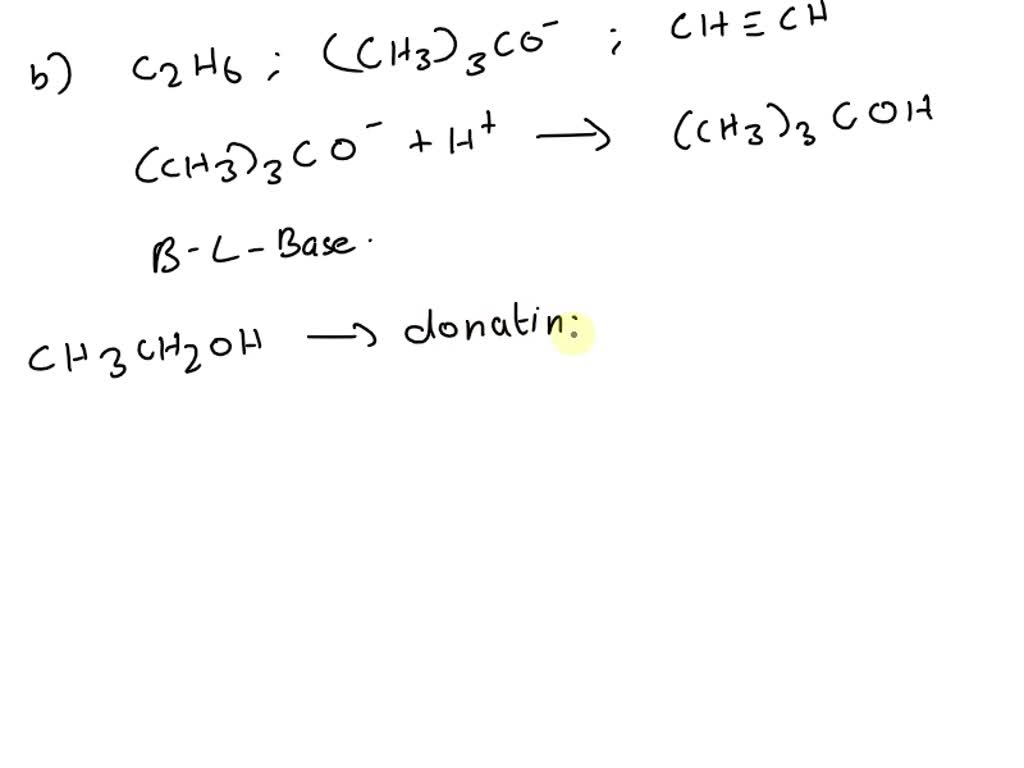 b) C₂H₆ ; (CH₃)₃CO⁻ ; CH≡CH
(CH₃)₃CO⁻ + H⁺ → (CH₃)₃COH
B-L-Base.
CH₃CH₂OH → donatin: